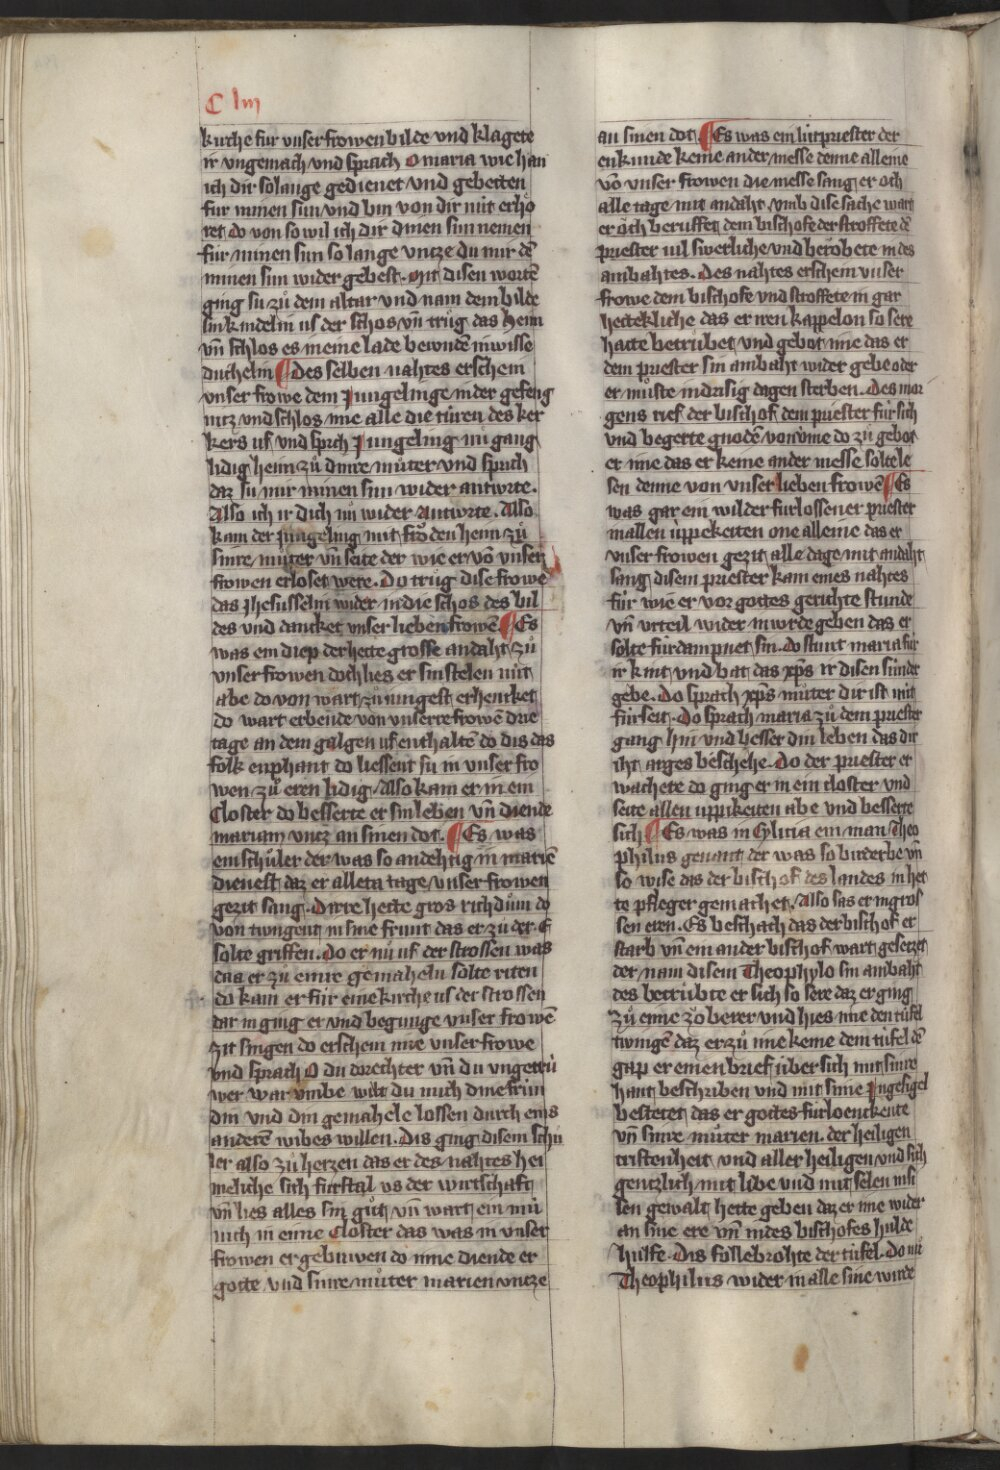 C liij
kirche fur vnser frowen bilde vnd klagete
ir vngemach vnd sprach O maria wie han
ich dir solange gedienet vnd gebetten
fur minen sun vnd bin von dir nút erhoͤ
ret do von so wil ich dir dinen sun nemen
für minen sun so lange vntze du mir dē
minen sun wider gebest. Mit disen wortē
ging sú zů dem altar vnd nam dem bilde
sin kindelin us der schos vn̄ trůg das heim
vn̄ schlos es in eine lade bewundē in wisse
duchelin ¶ Des selben nahtes erschein
vnser frowe dem Jungelinge in der gefeng
nitz vnd schlos ime alle die túren des ker
kers uf vnd sprch Jungeling nů gang
lidig heim zů dinre můter vnd sprich
daz sú mir minen sun wider antwrte.
Also ich ir dich nů wider Antwrte. Also
kam der Jungeling mit froͤden heim zů
sinre můter vn̄ seite der wie er vō vnser
frowen erloset were. Do trůg dise frowe
das Jhesusselin wider in die schos des bil
des vnd dancket vnser lieben frowē ¶ Es
was ein diep der hette grosse andaht zů
vnser frowen doch lies er sin stelen nút
abe do von wart zů iungest erhencket
do wart er bende von vnserre frowē drie
tage an dem galgen uf enthaltē do dis das
folk enphant do liessent sú in vnser fro
wen zů eren lidig Also kam er in ein
Closter do besserte er sin leben vn̄ diende
mariam vntz an sinen dot. ¶ Es was
ein schůler der was so andehtig in mariē
dienest daz er alleta tage vnser frowen
gezit sang. Dirre hette gros richdům do
von twingent in sine frunt das er zů der E
solte griffen. Do er nů uf der strossen was
daz er zů einre gemaheln solte riten
do kam er für eine kirche us der strossen
dar in ging er vnd begunge vnser frowē
zit singen do erschein ime vnser frowe
vnd sprach O du dorechter vn̄ du vngetrú
wer war vmbe wilt du mich dine frún
din vnd din gemahele lossen durch eins
anderē wibes willen. Dis ging disem schů
ler also zů hertzen das er des nahtes hei
meliche sich fürstal vs der wirtschaft
vn̄ lies alles sin gůt vn̄ wart ein mú
nich in eime Closter das was in vnser
frowen er gebuwen do inne diende er
gotte vnd sinre můter marien vntze
an sinen dot. ¶ Es was ein lútpriester der
enkunde keine ander messe denne alleine
vō vnser frowen die messe sang er och
alle tage mit andaht vmb dise sache wart
er och beruffet dem bischofe der stroffete dē
priester vil swerliche vnd beröbete in des
ambahtes. Des nahtes erschein vnser
frowe dem bischofe vnd stroffete in gar
hertekliche das er iren kappelon so sere
hatte betrúbet vnd gebot ime das er
dem priester sin ambaht wider gebe oder
er můste in drisig dagen sterben. Des mor
gens rief der bischof dem priester für sich
vnd begerte gnodē von ime do zů gebot
er ime das er keine ander messe solte le
sen denne von vnser lieben frowē ¶ Es
was gar ein wilder furlossener priester
in allen úppekeiten one alleine das er
vnser frowen gezit alle dage mit andaht
sang disem priester kam eines nahtes
für wie er vor gottes gerichte stunde
vn̄ vrteil wider in wrde geben das er
solte fúrdampnet sin. do stunt maria für
ir kint vnd bat das xp̄s ir disen súnder
gebe. Do sprach xp̄s můter dir ist nút
fúrseit. Do sprach maria zů dem priester
gang hin vnd besser din leben das dir
iht arges beschehe. Do der priester er
wachete do ging er in ein closter vnd
seite allen uppikeiten abe vnd besserte
sich ¶ Es was in Cylicia ein man Theo
philus genant der was so birderbe vn̄
so wise das der bischof des landes in het
te pfleger gemachet. Also sas er in gros
sen eren. Es beschach das der bischof er
starb vn̄ ein ander bischof wart gesetzet
der nam disem Theophylo sin ambaht
des betrúbte er sich so sere daz er ging
zů eime zoberer vnd hies ime den túfel
twingē daz er zů ime keme dem túfel dē
gap er einen brief über sich mit sinre
hant beschriben vnd mit sime Jngesigel
bestetet das er gottes fúrloenckente
vn̄ sinre můter marien. der heiligen
cristenheit vnd aller heiligen vnd sich
gentzlich mit libe vnd mit selen in si
nen gewalt hette geben daz er ime wider
an sine ere vn̄ in des bischofes hulde
hulfe. Dis follebrohte der túfel. Do nů
Theophilus wider in alle sine wirde